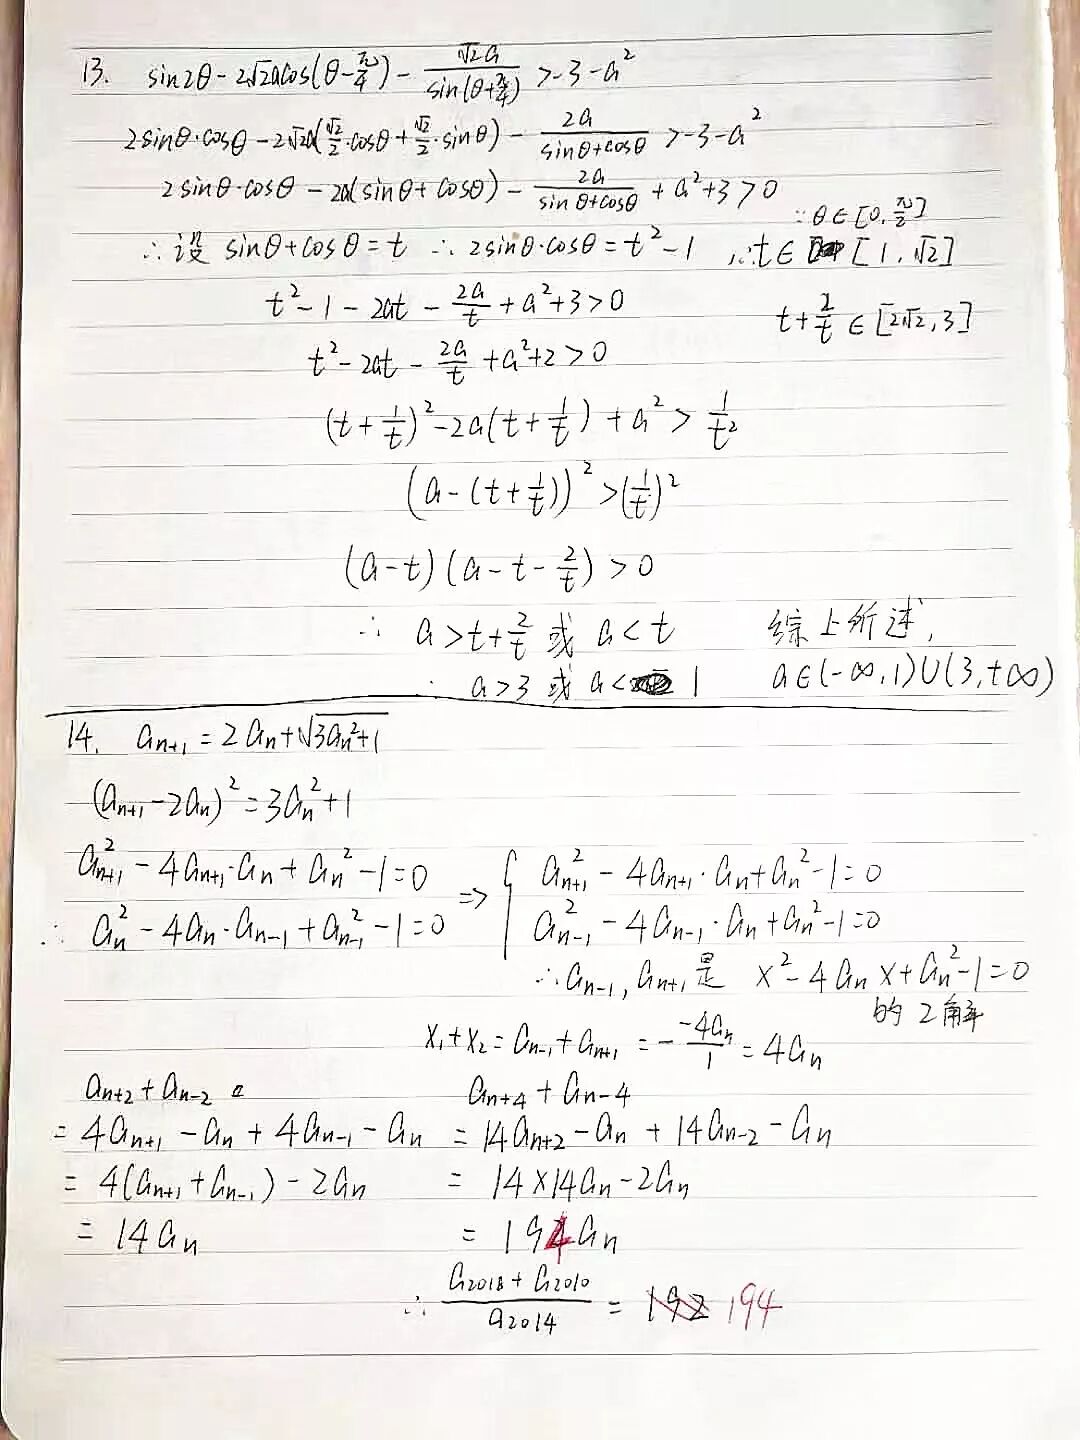 13. sin2θ - 2√2acos(θ-π/4) - √2a/sin(θ+π/4) > -3-a²
2sinθ·cosθ - 2√2a(√2/2·cosθ + √2/2·sinθ) - 2a/(sinθ+cosθ) > -3-a²
2sinθ·cosθ - 2a(sinθ+cosθ) - 2a/(sinθ+cosθ) + a²+3>0
∵θ∈[0,π/2]
∴设 sinθ+cosθ=t ∴2sinθ·cosθ=t²-1 ∴t∈[1,√2]
t²-1-2at-2a/t+a²+3>0
t+2/t∈[2√2,3]
t²-2at-2a/t+a²+2>0
(t+1/t)²-2a(t+1/t)+a²>1/t²
(a-(t+1/t))²>(1/t)²
(a-t)(a-t-2/t)>0
∴ a>t+2/t 或 a<t 综上所述,
∴ a>3 或 a<1 a∈(-∞,1)∪(3,+∞)
14. aₙ₊₁=2aₙ+√(3aₙ²+1)
(aₙ₊₁-2aₙ)²=3aₙ²+1
aₙ₊₁²-4aₙ₊₁·aₙ+aₙ²-1=0 => { aₙ₊₁²-4aₙ₊₁·aₙ+aₙ²-1=0
∴ aₙ²-4aₙ·aₙ₋₁+aₙ₋₁²-1=0 aₙ₋₁²-4aₙ₋₁·aₙ+aₙ²-1=0
∴aₙ₋₁,aₙ₊₁是 x²-4aₙx+aₙ²-1=0
的2解
x₁+x₂=aₙ₋₁+aₙ₊₁=-(-4aₙ/1)=4aₙ
aₙ₊₂+aₙ₋₂ aₙ₊₄+aₙ₋₄
=4aₙ₊₁-aₙ+4aₙ₋₁-aₙ =14aₙ₊₂-aₙ+14aₙ₋₂-aₙ
=4(aₙ₊₁+aₙ₋₁)-2aₙ =14×14aₙ-2aₙ
=14aₙ =194aₙ
∴ (a₂₀₁₈+a₂₀₁₀)/a₂₀₁₄ = 192 194